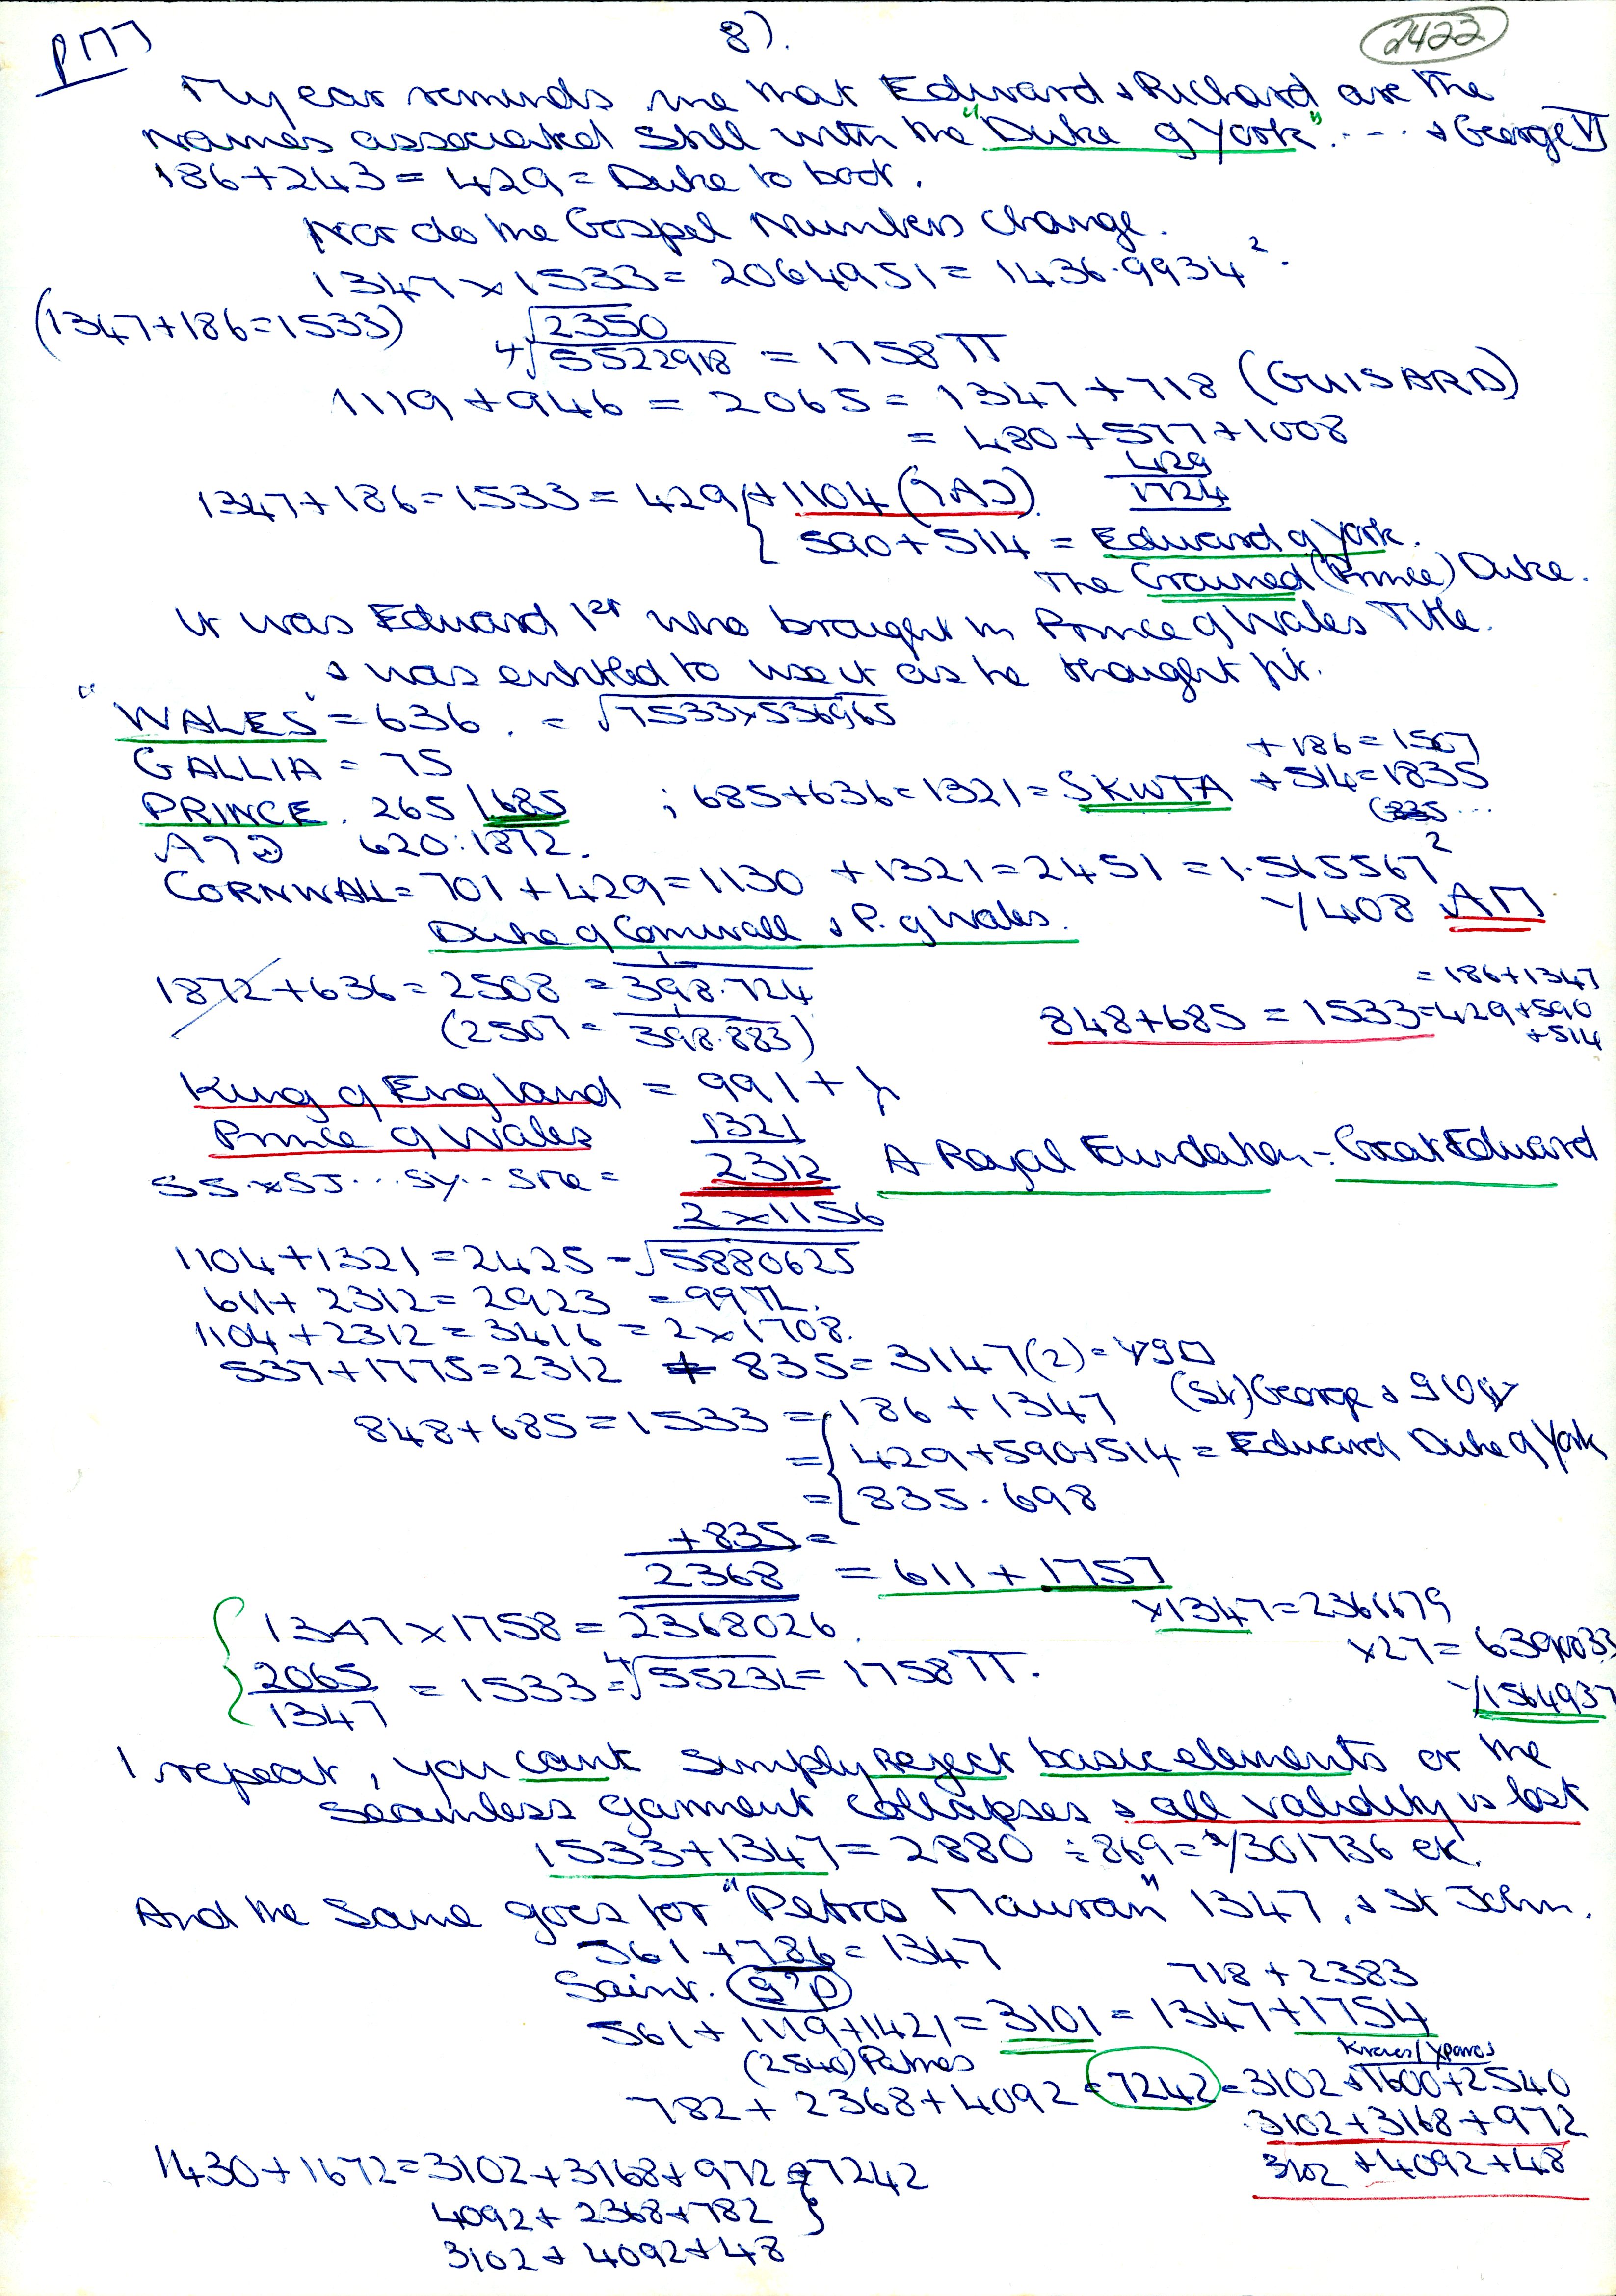 8).
2422
My ear reminds me that Edward & Richard are the
names associated still with the "Duke of York". --- & George VI
186+243 = 429 = Duke to boot.
Nor do the Gospel Numbers change.
1347 x 1533 = 2064951 = 1436.9934².
(1347+186=1533) √2350
4√5522918 = 1758 π
1119 + 946 = 2065 = 1347 + 718 (GUISARD)
= 480 + 577 + 1008
1347 + 186 = 1533 = 429 + 1104 429
1724
590 + 514 = Edward of York.
The Crowned (Prince) Duke.
It was Edward 1st who brought in Prince of Wales Title.
& was entitled to use it as he thought fit.
"WALES" = 636. = √7533x536965
GALLIA = 75 +186 = 1507
PRINCE. 265 685 ; 685+636=1321= SKWTA +514=1835
620:1872.
CORNWALL = 701 + 429 = 1130 + 1321 = 2451 = 1.515567²
Duke of Cornwall & P. of Wales. 1/408
1872+636 = 2508 = 1/398.724 = 186+1347
(2507 = 1/398.883) 848+685 = 1533 = 429+590
+514
King of England = 991 +
Prince of Wales 1321
2312 A Royal Foundation - Great Edward
2 x 1156
1104 + 1321 = 2425 = √5880625
611 + 2312 = 2923
1104 + 2312 = 3416 = 2 x 1708.
537 + 1775 = 2312 + 835 = 3147 (2)
(St) George &
848 + 685 = 1533 = 186 + 1347
= 429 + 590 + 514 = Edward Duke of York
= 835 . 698
+835 =
2368 = 611 + 1757
1347 x 1758 = 2368026. x1347 = 2366679
2065/1347 = 1533 = 1758 π. x27 =
1/1564937
I repeat, you can't simply reject basic elements or the
seamless garment collapses & all validity is lost
1533 + 1347 = 2880 ÷ 869 = 301736 etc.
And the same goes for "Petros Mauran" 1347, & St John.
561 + 786 = 1347
Saint. 718 + 2383
561 + 1119 + 1421 = 3101 = 1347 + 1754
(2540) Patmos
782 + 2368 + 4092 = 7242 = 3102 + 1600 + 2540
3102 + 3168 + 972
1430 + 1672 = 3102 + 3168 + 972 = 7242 3102 + 4092 + 48
4092 + 2368 + 782
3102 + 4092 + 48